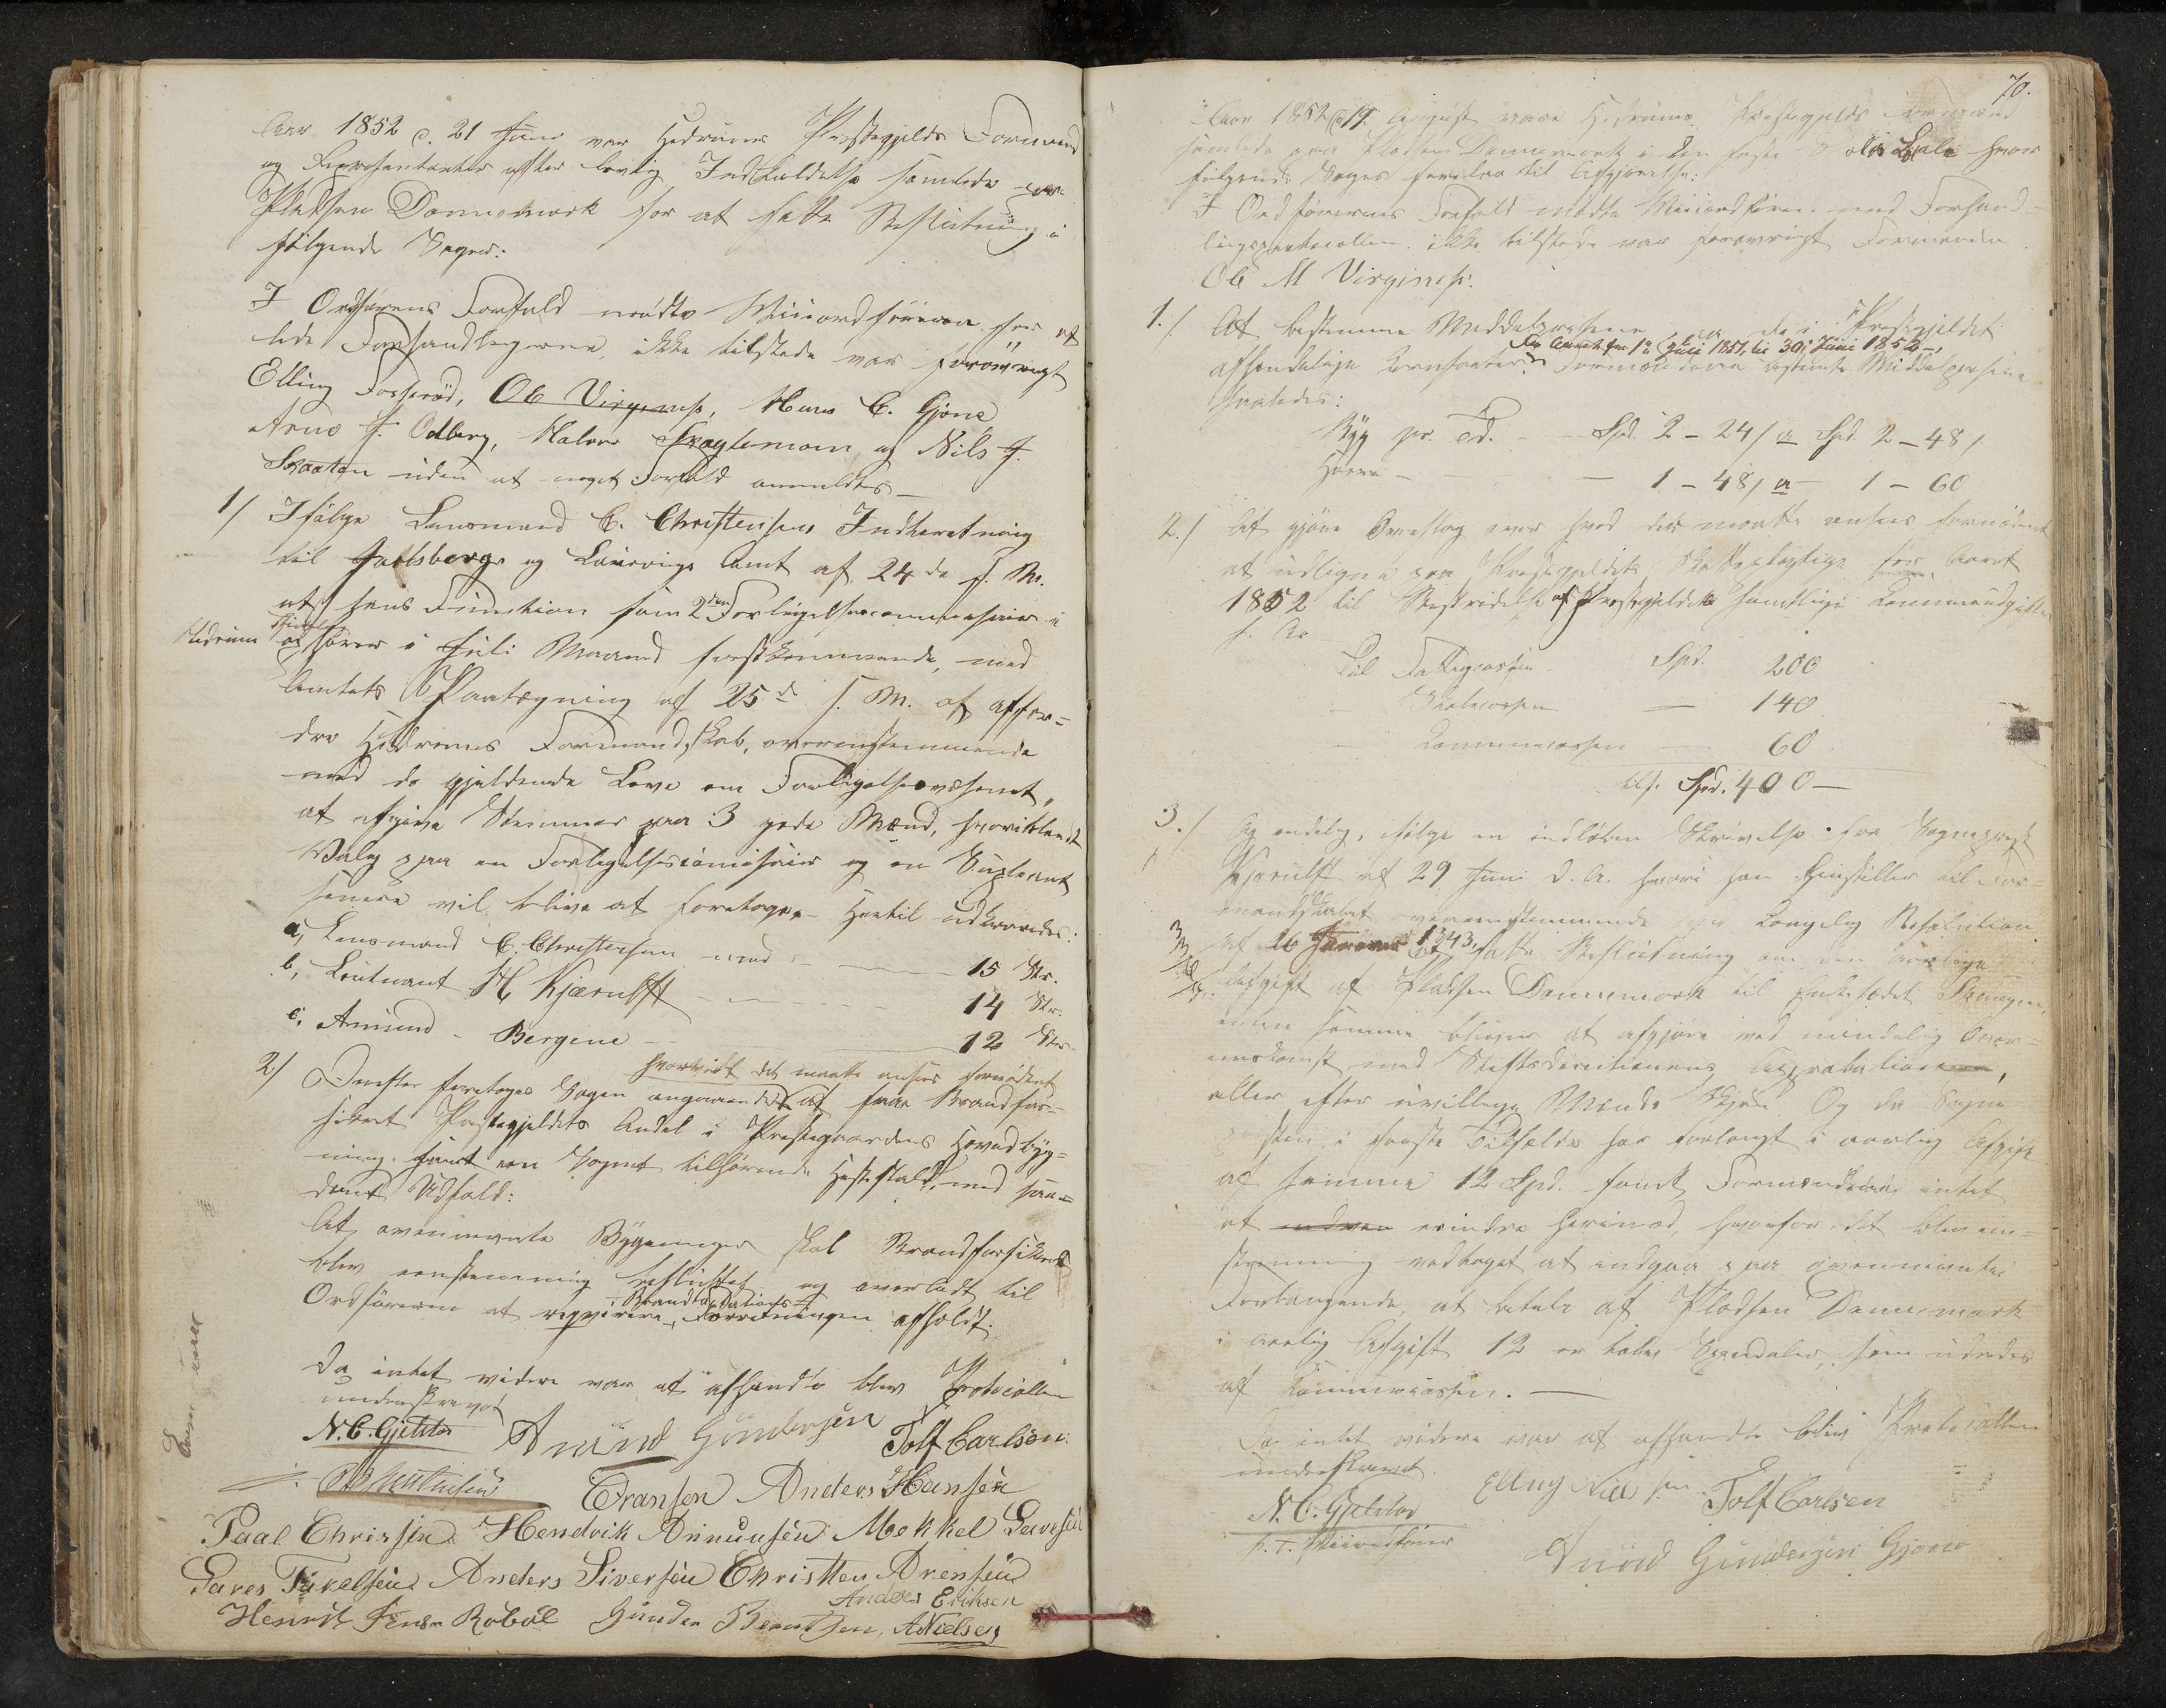 Aar 1852 d. 21 Juni var Hedrums Præstegjelds Formænd
og Repræsentanter efter lovlig Indkaldelse samlede paa
Pladsen Dannemork for at fatte Beslutning i
følgende Sager:
I Ordførerens Forfald mødte Viceordføreren for at
lede Forhandlingerne, ikke tilstede var forøvrigt
Elling Fosserød, Ole Virgenes, Hans C. Gjone
Arno J. Odberg, Halvor og Nils J.
Skaaten uden at noget Forfald anmeldtes
1/ Ifølge Lensmand C. Christensens Indberetning
til Jarlsbergs og Laurvigs Amt af 24de f. M.
at hans Function som 2den Forligelsescommissair i
Hedrum ophører i Juli Maaned førstkommende, med
Amtets Paategning af 25de f. M. at affor=
dre Hedrums Formandskab, overensstemmende
med de gjeldende Love om Forligelsesvæsenet,
at afgive Stemmer paa 3 gode Mænd, hvoriblandt
Valg paa en Forligelsescommissair og en Supleant
senere vil blive at foretage. Hertil udkaaredes:
a, Lensmand C. Christensen med 15 St.
b, Leutnant H. Kjærulff 14 St.
c, Amund Bergene 12 St.
hvorvidt det maatte ansees fornødent
2/ Derefter foretoges Sagen angaaende at faae Brandfor=
sikret Præstegjeldets Andel i Præstegaardens Hovedbyg=
ning samt den Sognet tilhørende Hestestald, med saa=
dant Udfald:
At ovennævnte Bygninger skal Brandforsikres
blev eenstemmig besluttet og overladt til
Brandtaxations
Ordføreren at requirere Forretningen afholdt.
Da intet videre var at afhandle blev Protocollen
underskrevet
N. C. Gjelstad Amund Gundersen Tolf Carlsen
C. Christensen Anders Hansen
Paal Chrissen Hendrik Amunsen Mekkel
Lares Anders Siversen Christen Arensen
Anders Eriksen
Henrik Jensen Røbøl Gunder Berntsen, A Nielsen
70.
Aar 1852 d. 19 August vare Hedrums Præstegjelds Formænd
samlede paa Pladsen Dannemork i den faste Skole Locale hvor
følgende Sager foretoges til Afgjørelse:
I Ordførerens Forfald mødte Viceordføreren med Forhand=
lingsprotocollen. ikke tilstede var forøvrigt Formanden
Ole M Virgenes.
1./ At bestemme Middelpriserne paa de i Præstegjeldet
for Aaret fra 1ste Juli 1851 til 30te Juni 1852
afhændelige Kornsorter. Formændene bestemte Middelpriserne
saaledes:
Byg pr. Td. Spd. 2 - 24 / a Spd. 2 - 48 /
Havre 1 - 48 / a 1 - 60
2./ At gjøre Overslag over hvad der maatte ansees fornødent
at udligne paa Præstegjeldets Skattepligtige for Aaret
1852 til Bestridelse af Præstegjeldets samtlige Communeudgifter
Til Fattigcassen Spd. 200
Skolecassen 140
Communecassen 60
Spd. 400 —
3./ Og endelig, ifølge en indløben Skrivelse fra Sognepræst
Kjærulff af 29 Juni d. A. hvori han henstiller til For=
mandskabet overeensstemmende med Kongelig Resolution
af 26 Januar 1843, at fatte Beslutning om den aarlige
Afgift af Pladsen Dannemork til Enkesædet
enten samme bliver at afgjøre ved mindelig Over=
eenskomst med Stiftsdirectionens Approbation,
eller efter uvillige Mænds Skjøn. Og da Sogne=
præsten i første Tilfælde har forlangt i aarlig Afgift
af samme 12 Spd. fandt Formændene intet
at erindre herimod, hvorfor det blev een=
stemmig vedtaget at indgaa paa ovennævnte
Forlangende, at betale af Pladsen Dannemork
i aarlig Afgift 12 er tolv Speciedaler, som udredes
af Communecassen. —
Da intet videre var at afhandle blev Protocollen
underskrevet.
N. C. Gjelstad Elling Nielsen Tolf Carlsen
p. t. Viceordfører
Amund Gundersen Gjone